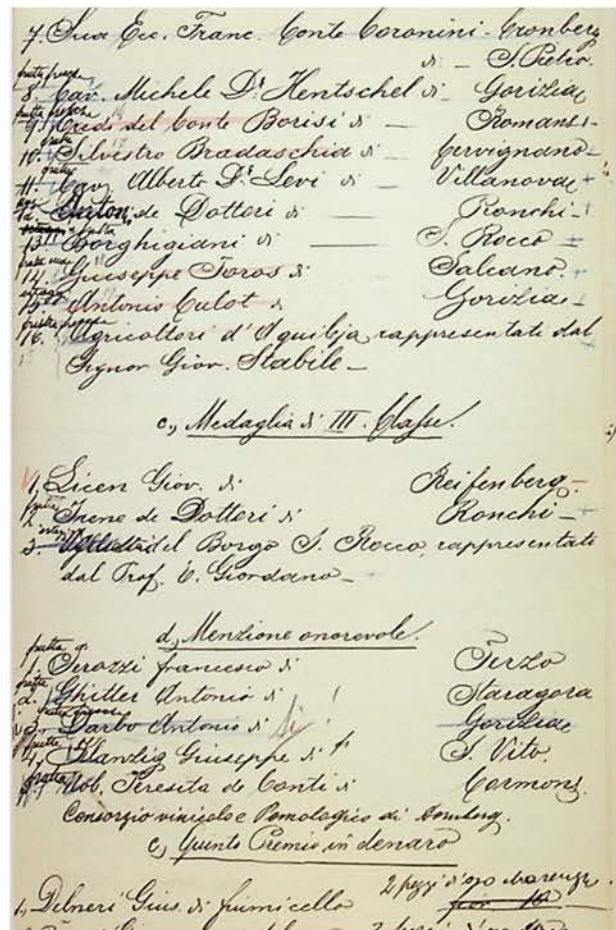 7. Sua Ecc. Franc. Conte Coronini-Cronberg
di — S. Pietro.
frutta fresca
8. Cav. Michele Dr. Hentschel di Gorizia
frutta fresca
9. Eredi del Conte Borisi di — Romans -
frutta
10. Silvestro Bradaschia di Cervignano -
11. Cav. Alberto Dr. Levi di — Villanova
Anton. de Dottori di Ronchi -
13. Borghigiani di — S. Rocco
14. Giuseppe Toros di Salcano.
15. Antonio Culot di Gorizia -
16. Agricoltori d'Aquileja, rappresentati dal
Signor Giov. Stabile —
c., Medaglia di III. Classe.
1, Licen Giov. di Reifenberg.
2. Irene de Dottori di Ronchi -
3. del Borgo S. Rocco, rappresentati
dal Prof. E. Giordano —
d., Menzione onorevole.
frutta
1. Francesco di Terzo
frutta
2. Ghitter Antonio di Staragora
3. Darbo Antonio di Si! Gorizia
frutta
4. Klanzig Giuseppe di S. Vito.
frutta
5. Nob. Teresita de Conti di Cormons.
Consorzio vinicolo e Pomologico di Dornberg.
e, Quinto Premio in denaro
1, Delneri Gius. di fiumicello 2 pezzi d'oro